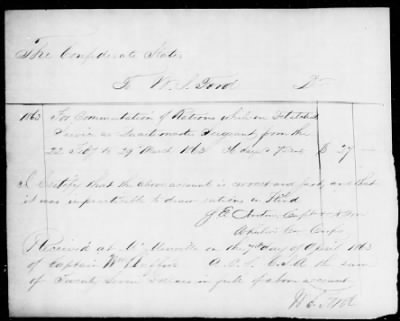 The Confederate States
To W. S. Ford Dr
1863 For Commutation of Rations while on Detached
Service as Quartermaster Sergeant from the
22 Feby to 29 March 1863 36 days @ 75 cts $ 27 —
I Certify that the above account is correct and just, and that
it was impracticable to draw rations in Kind
Capt
Corps
Received at on the 7th day of April 1863
of Captain Wm A. C. S. C.S.A the sum
of Twenty Seven Dollars in full of above account.
W S Ford